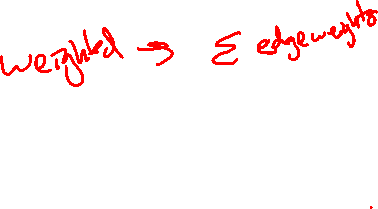 weighted → Σ edgeweights